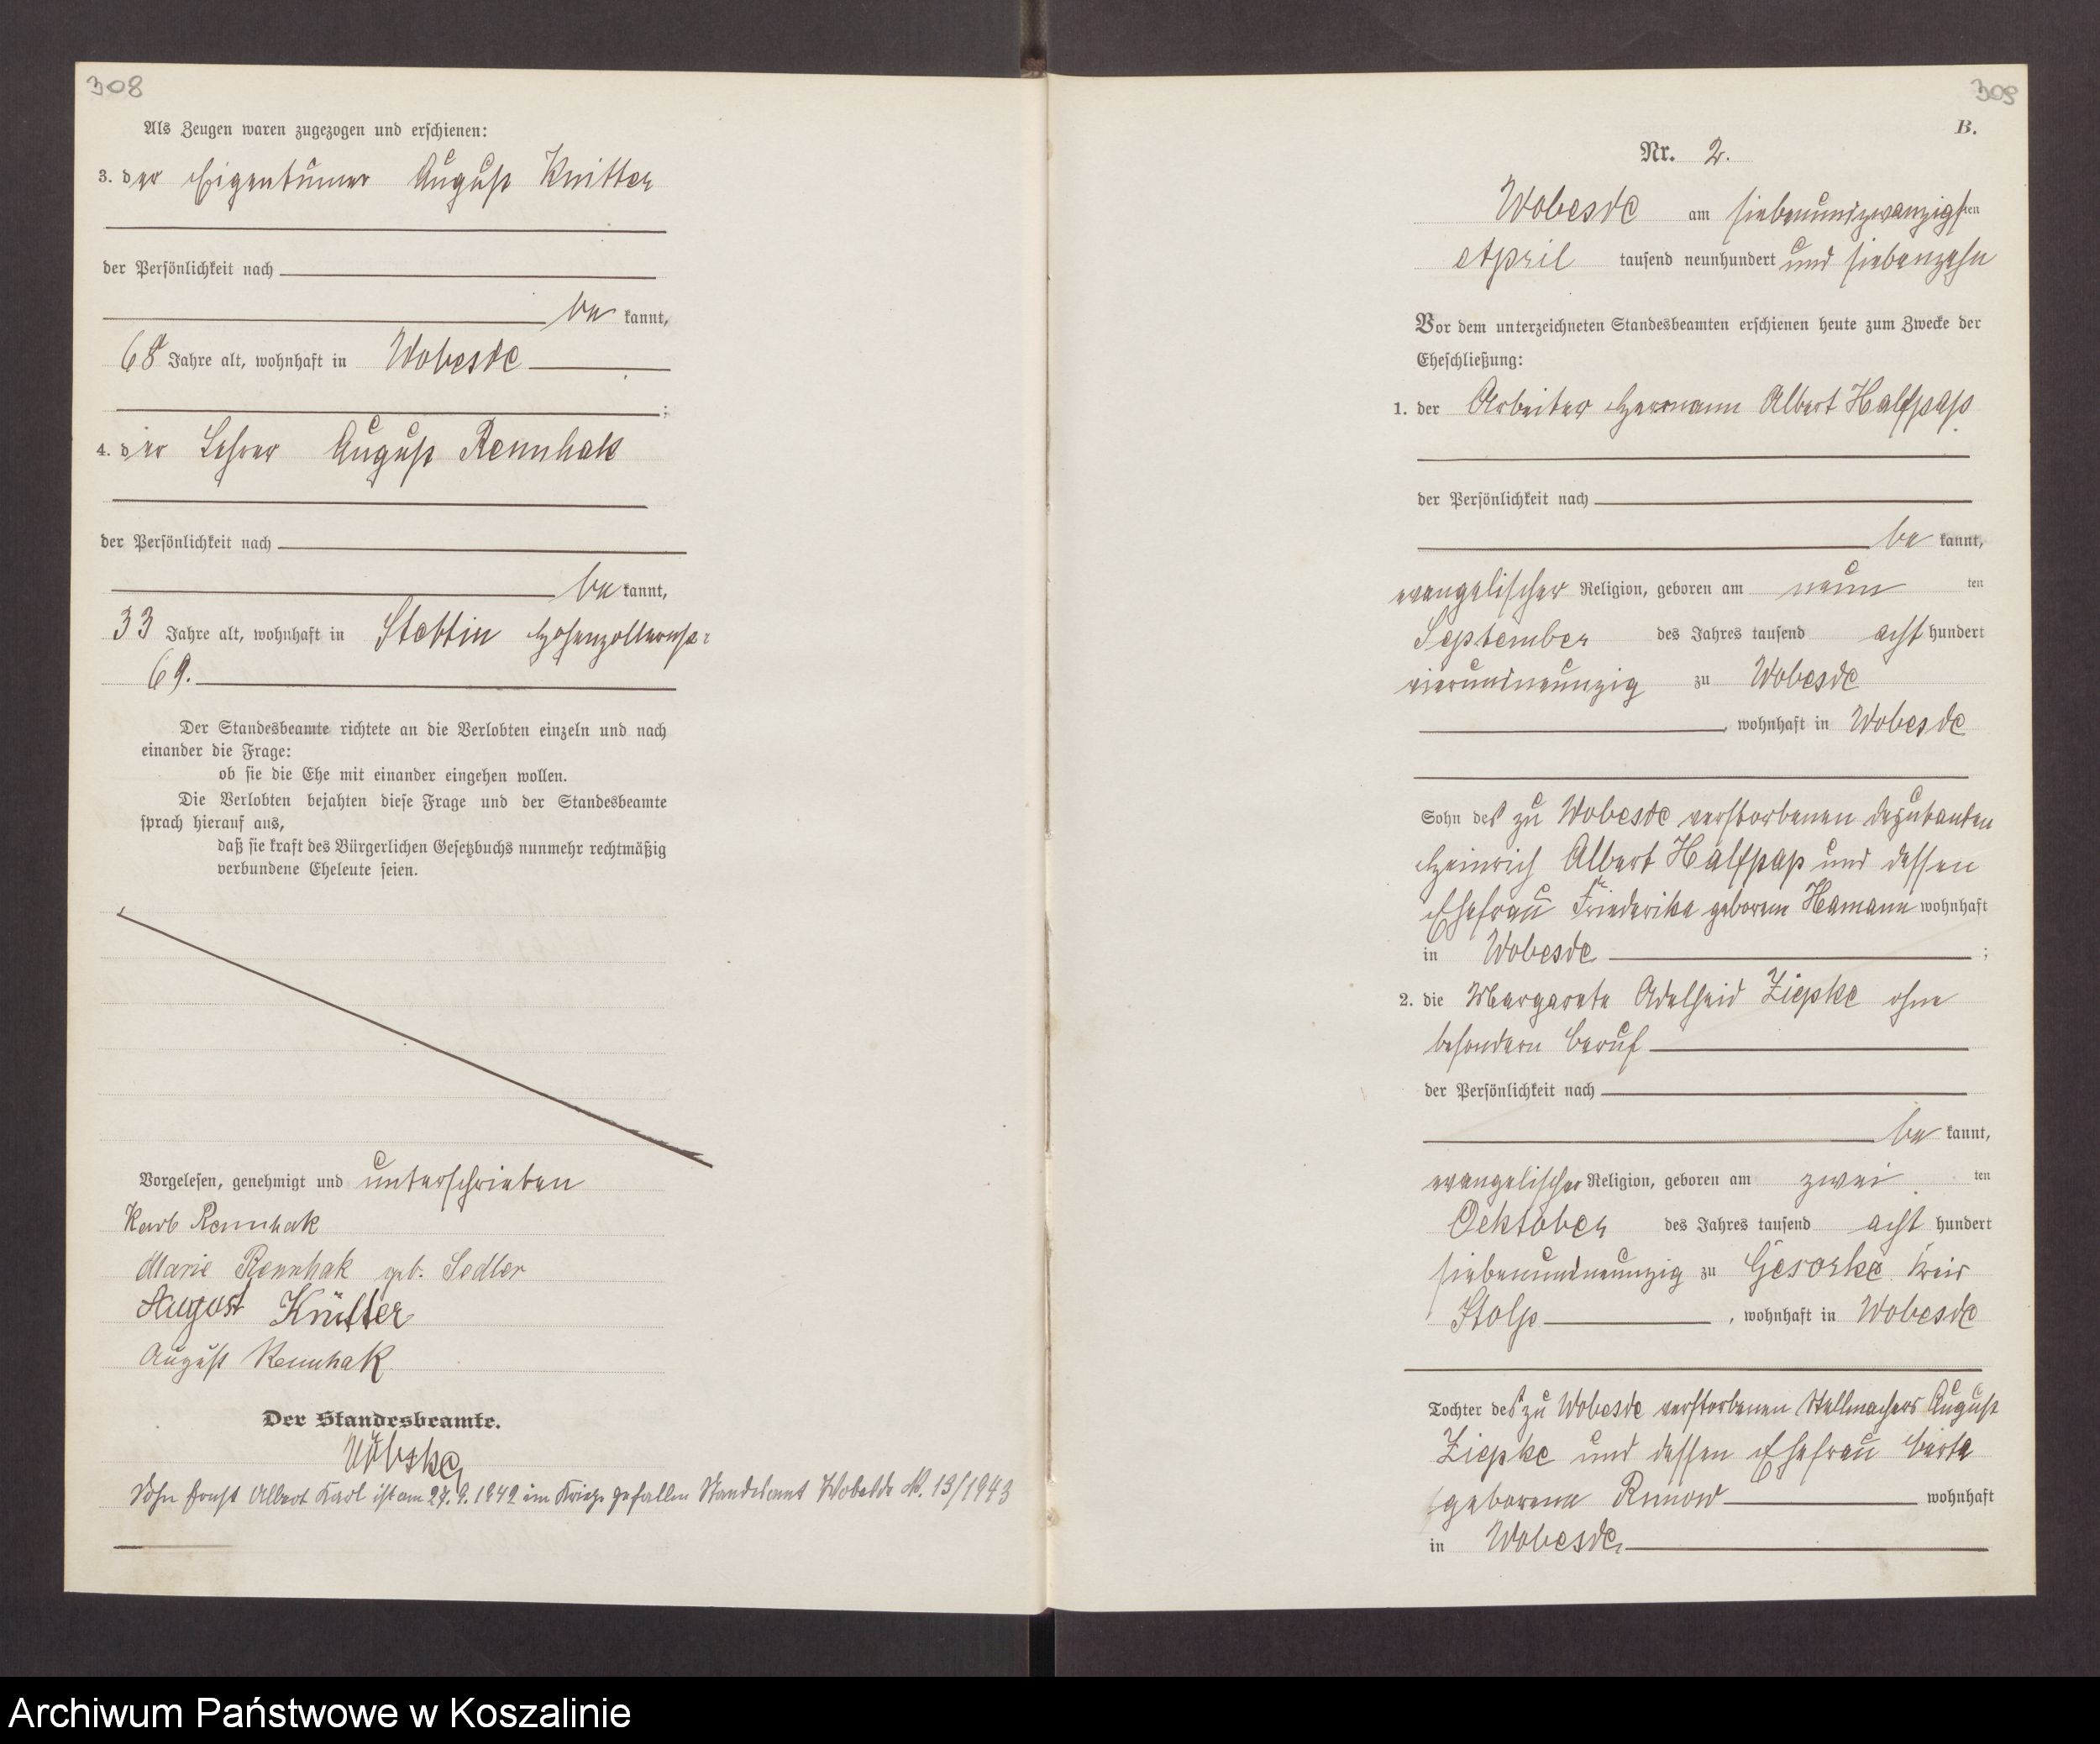 308
Als Zeugen waren zugezogen und erschienen:
3. der Eigentümer August Knitter
der Persönlichkeit nach
be kannt,
68 Jahre alt, wohnhaft in Wobesde
;
4. der Lehrer August Rennhak
der Persönlichkeit nach
be kannt,
33 Jahre alt, wohnhaft in Stettin Hohenzollernstr:
69.
Der Standesbeamte richtete an die Verlobten einzeln und nach
einander die Frage:
ob sie die Ehe mit einander eingehen wollen.
Die Verlobten bejahten diese Frage und der Standesbeamte
sprach hierauf aus,
daß sie kraft des Bürgerlichen Gesetzbuchs nunmehr rechtmäßig
verbundene Eheleute seien.
Vorgelesen, genehmigt und unterschrieben
Rennhak
Marie Rennhak geb. Sedler
August Knitter
August Rennhak
Der Standesbeamte.
Sohn Ernst Albert Karl ist am 27. 9. 1942 im Kriege gefallen Standesamt Wobesde N. 13/1943
309
B.
Nr. 2.
Wobesde am siebenundzwanzigsten
April tausend neunhundert und siebenzehn
Vor dem unterzeichneten Standesbeamten erschienen heute zum Zwecke der
Eheschließung:
1. der Arbeiter Hermann Albert Halfpap
der Persönlichkeit nach
be kannt,
evangelischer Religion, geboren am neun ten
September des Jahres tausend acht hundert
vierundneunzig zu Wobesde
, wohnhaft in Wobesde
Sohn des zu Wobesde verstorbenen Deputanten
Heinrich Albert Halfpap und dessen
Ehefrau Friederike geborene Hamann wohnhaft
in Wobesde ;
2. die Margarete Adelheid Ziepke ohne
besondern Beruf
der Persönlichkeit nach
be kannt,
evangelischer Religion, geboren am zwei ten
Oektober des Jahres tausend acht hundert
siebenundneunzig zu Gesorke Kreis
Stolp , wohnhaft in Wobesde
Tochter des zu Wobesde verstorbenen Stellmachers August
Ziepke und dessen Ehefrau Berta
geborene Runow wohnhaft
in Wobesde
Archiwum Państwowe w Koszalinie